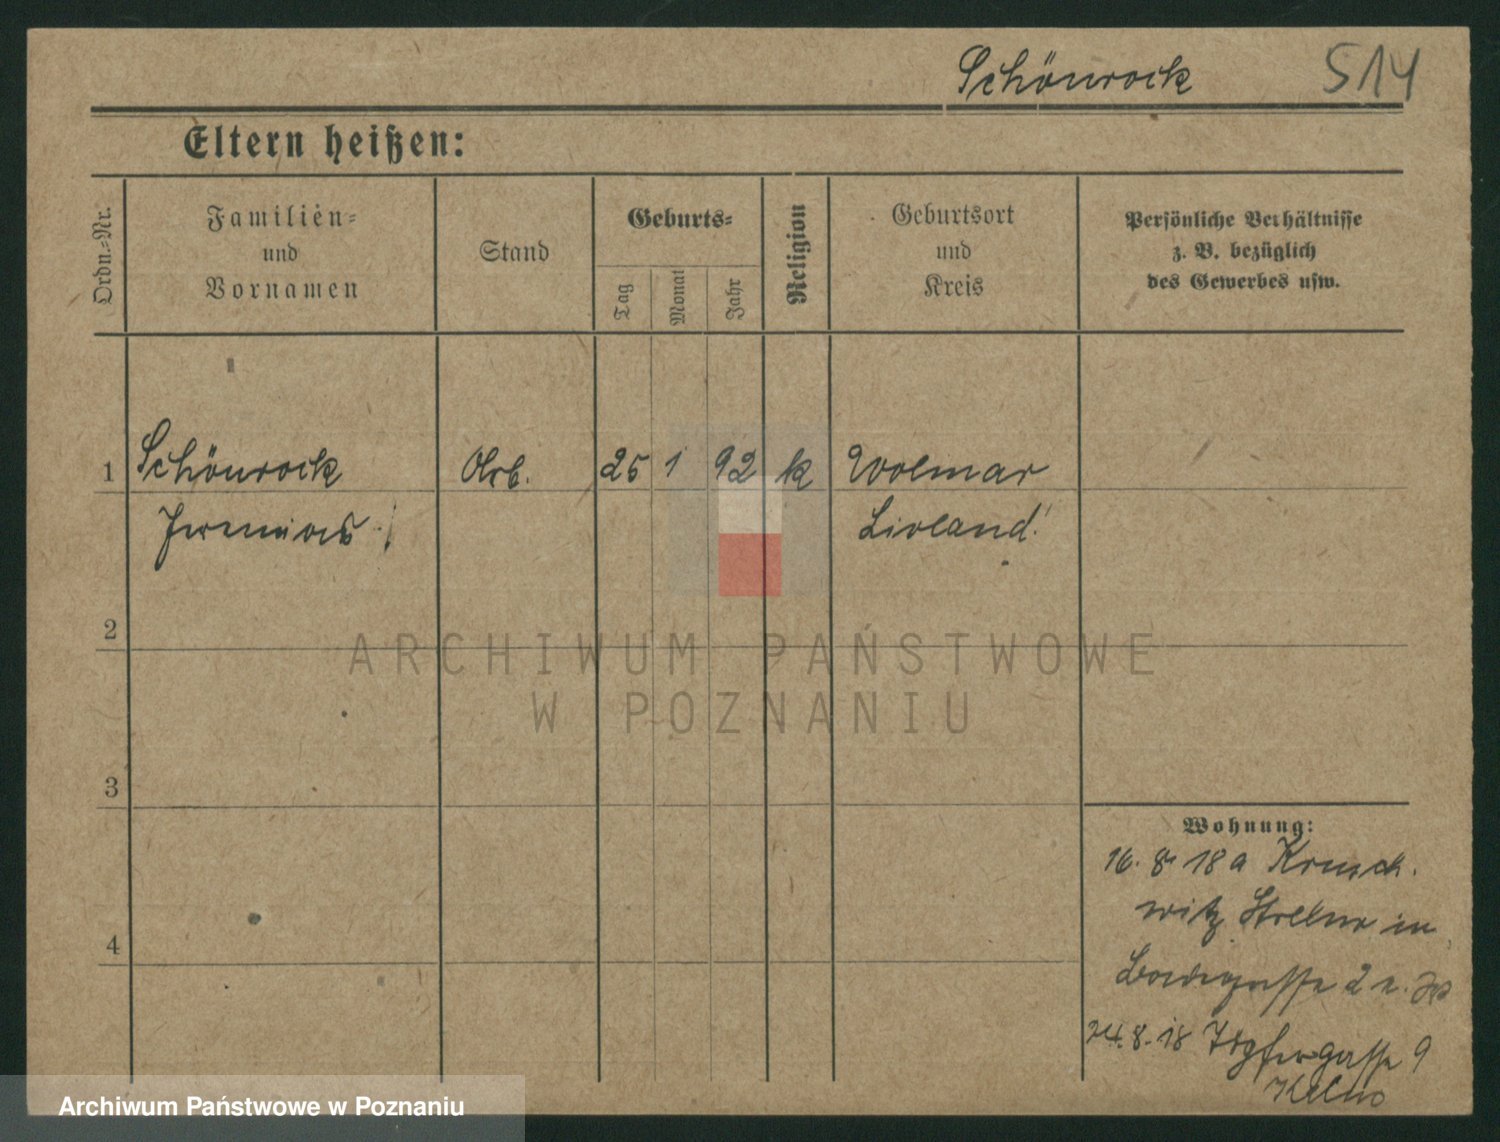 Schönrock 514
Eltern heißen:
Ordn.-Nr.
Familien-
und
Vornamen
Stand
Geburts-
Tag
Monat
Jahr
Religion
Geburtsort
und
Kreis
Persönliche Verhältnisse
z. B. bezüglich
des Gewerbes usw.
1 Schönrock Arb. 25 1 92 k Wolmar
Jeremias! Livland!
2
ARCHIWUM PAŃSTWOWE
W POZNANIU
3
Wohnung:
16. 8. 18 a Krusch.
witz Strelno in
2
4
24. 8. 18 9
Archiwum Państwowe w Poznaniu